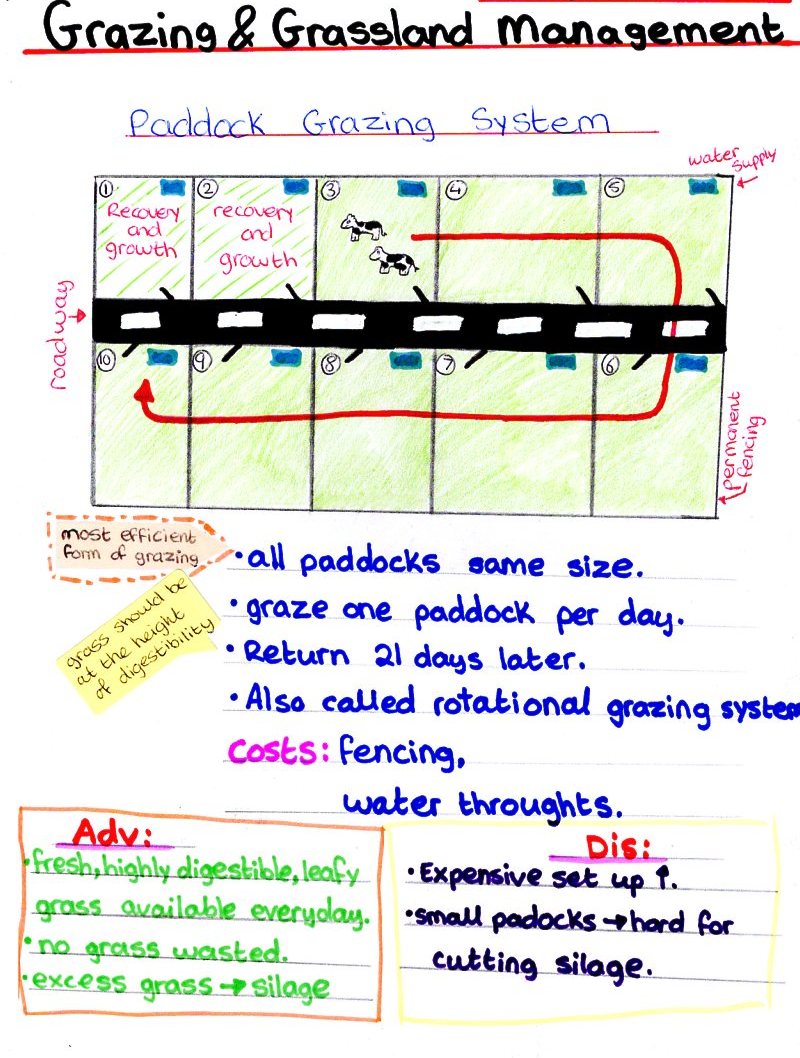 Grazing & Grassland Management
Paddock Grazing System
water supply
① ② ③ ④ ⑤
Recovery and growth
recovery and growth
roadway
⑩ ⑨ ⑧ ⑦ ⑥
permanent fencing
most efficient
form of grazing
grass should be
at the height
of digestibility
• all paddocks same size.
• graze one paddock per day.
• Return 21 days later.
• Also called rotational grazing system
Costs: fencing,
water throughts.
Adv:
• fresh, highly digestible, leafy
grass available everyday.
• no grass wasted.
• excess grass → silage
Dis:
• Expensive set up ↑.
• small padocks → hard for
cutting silage.